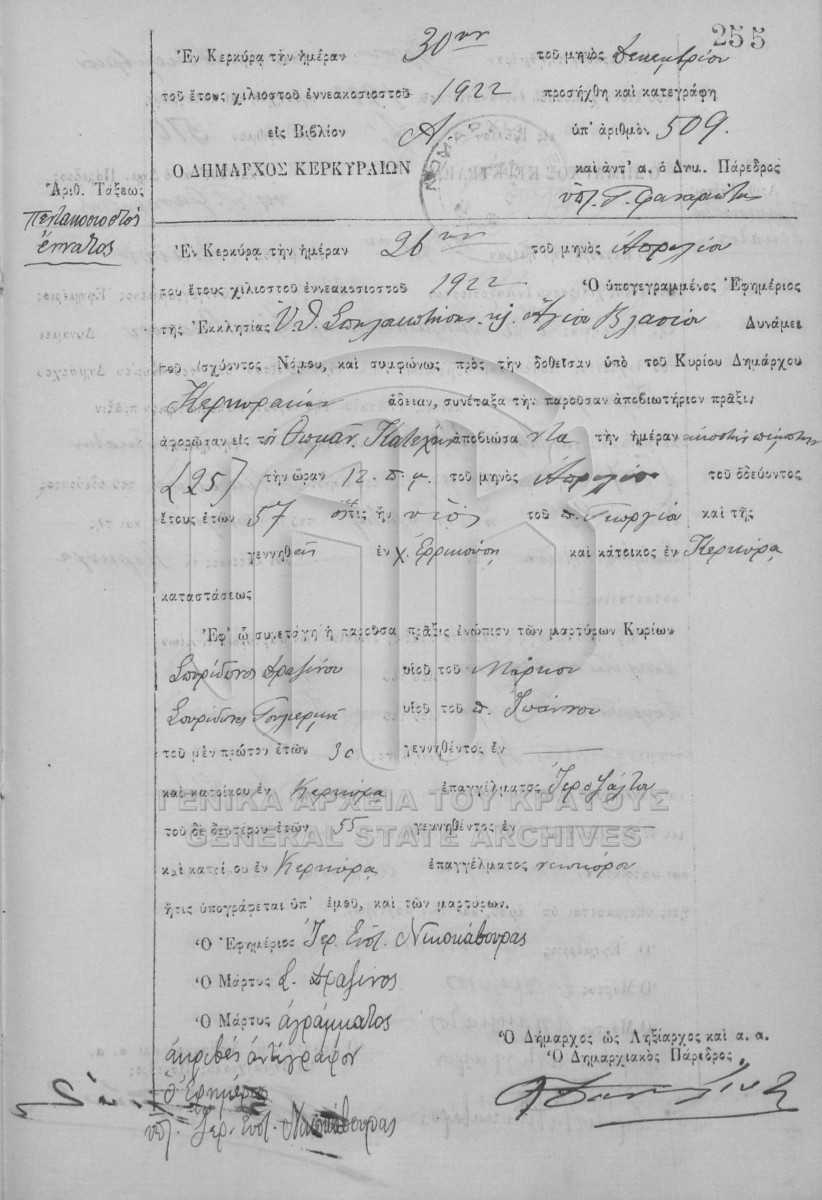 255
Ἐν Κερκύρᾳ τὴν ἡμέραν 30ην τοῦ μηνὸς Δεκεμβρίου
τοῦ ἔτους χιλιοστοῦ ἐννεακοσιοστοῦ 1922 προσήχθη καὶ κατεγράφη
εἰς Βιβλίον Α. ὑπ' ἀριθμὸν 509.
Ο ΔΗΜΑΡΧΟΣ ΚΕΡΚΥΡΑΙΩΝ καὶ ἀντ' α. ὁ Δημ. Πάρεδρος
ὑπ. Γ.
Ἀριθ. Τάξεως
πεντακοσιοστός
ἔννατος
Ἐν Κερκύρᾳ τὴν ἡμέραν 26ην τοῦ μηνὸς Ἀπριλίου
του ἔτους χιλιοστοῦ ἐννεακοσιοστοῦ 1922 Ὁ ὑπογεγραμμένος Ἐφημέριος
τῆς Ἐκκλησίας Ὑ. Θ. Σπηλαιωτίσσης κ. Ἁγίου Βλασίου Δυνάμει
τοῦ ἰσχύοντος Νόμου, καὶ συμφώνως πρὸς τὴν δοθεῖσαν ὑπὸ τοῦ Κυρίου Δημάρχου
Κερκυραίων ἄδειαν, συνέταξα τὴν παροῦσαν ἀποβιωτήριον πρᾶξιν
ἀφορῶσαν εἰς τὸν Θωμᾶν Κατέχην ἀποβιώσαντα τὴν ἡμέραν εἰκοστὴν πέμπτην
(25) τὴν ὥραν 12 π.μ. τοῦ μηνὸς Ἀπριλίου τοῦ ὁδεύοντος
ἔτους ἐτῶν 57 ὅστις ἦν υἱὸς τοῦ π. Γεωργίου καὶ τῆς
γεννηθεὶς ἐν χ. Ἐρρικούσῃ καὶ κάτοικος ἐν Κερκύρᾳ
καταστάσεως
Ἐφ' ᾧ συνετάγη ἡ παροῦσα πρᾶξις ἐνώπιον τῶν μαρτύρων Κυρίων
Σπυρίδωνος Δραζίνου υἱοῦ τοῦ Μάρκου
Σπυρίδωνος υἱοῦ τοῦ π. Ἰωάννου
τοῦ μὲν πρώτου ἐτῶν 30 γεννηθέντος ἐν
καὶ κατοίκου ἐν Κερκύρᾳ ἐπαγγέλματος Ἱεροψάλτου
ΓΕΝΙΚΑ ΑΡΧΕΙΑ ΤΟΥ ΚΡΑΤΟΥΣ
τοῦ δὲ δευτέρου ἐτῶν 55 γεννηθέντος ἐν
GENERAL STATE ARCHIVES
καὶ κατοίκου ἐν Κερκύρᾳ ἐπαγγέλματος νεωκόρου
ἥτις ὑπογράφεται ὑπ' ἐμοῦ, καὶ τῶν μαρτύρων.
Ὁ Ἐφημέριος Ἱερ. Εὐστ. Νικοκάβουρας
Ὁ Μάρτυς Σ. Δραζίνος
Ὁ Μάρτυς ἀγράμματος
ἀκριβὲς ἀντίγραφον
Ὁ Ἐφημέριος
ὑπ. Ἱερ. Εὐστ. Νικοκάβουρας
Ὁ Δήμαρχος ὡς Ληξίαρχος καὶ α. α.
Ὁ Δημαρχιακὸς Πάρεδρος